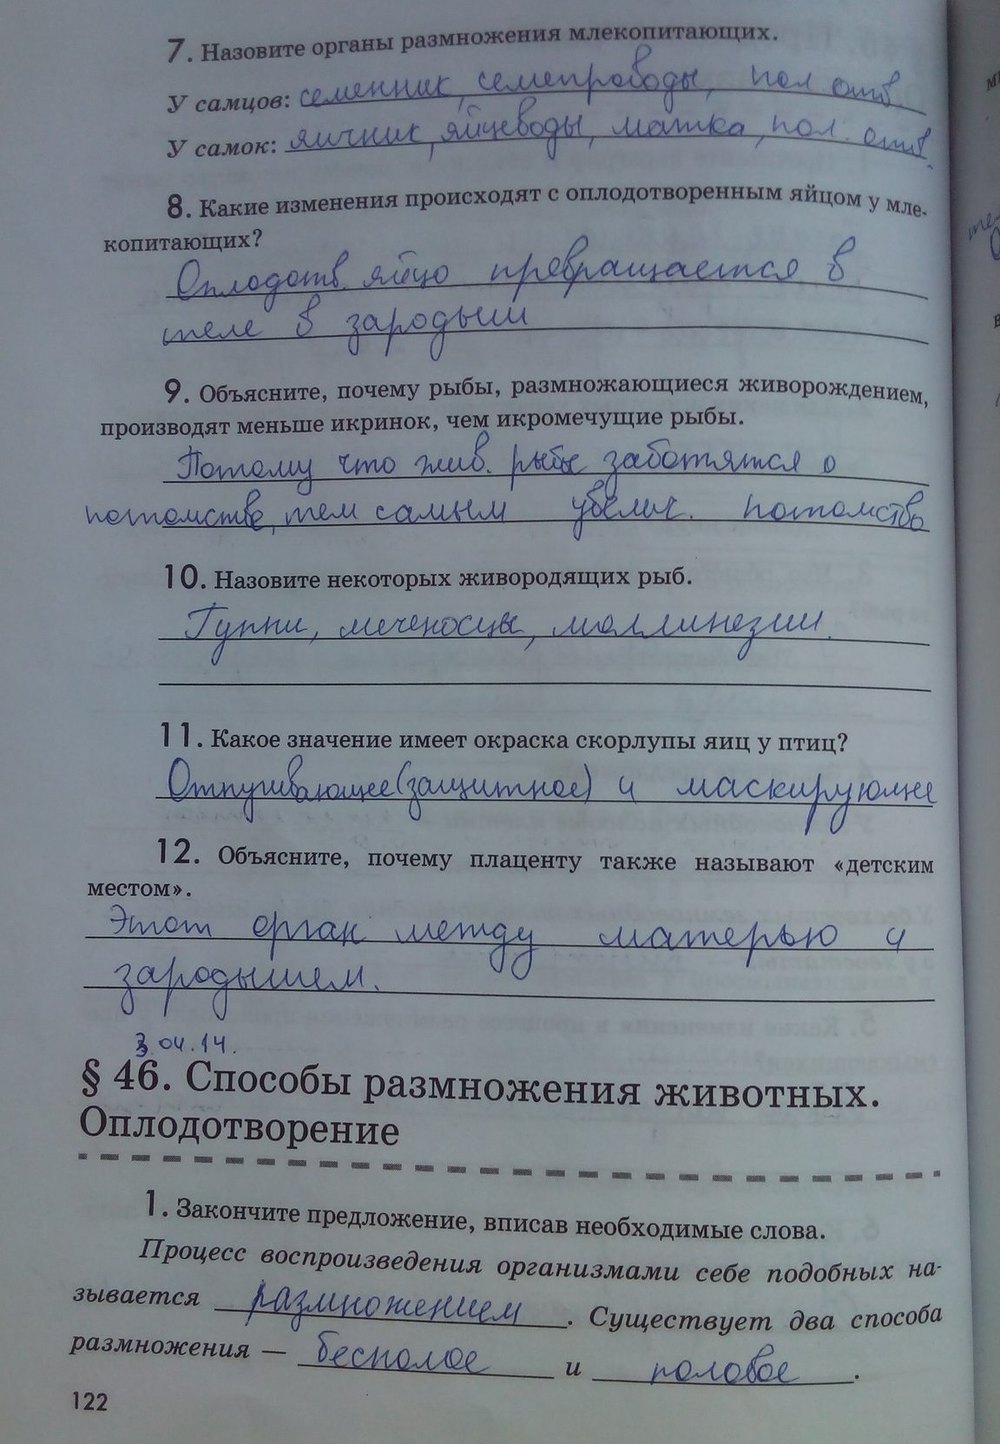 7. Назовите органы размножения млекопитающих.
У самцов: семенник, семепроводы, пол отв.
У самок: яичник, яйцеводы, матка, пол. отв.
8. Какие изменения происходят с оплодотворенным яйцом у мле-
копитающих?
Оплодотв. яйцо превращается в
теле в зародыш
9. Объясните, почему рыбы, размножающиеся живорождением,
производят меньше икринок, чем икромечущие рыбы.
Потому что жив. рыбы заботятся о
потомстве, тем самым увелич. потомство
10. Назовите некоторых живородящих рыб.
Гуппи, меченосцы, моллинезии.
11. Какое значение имеет окраска скорлупы яиц у птиц?
Отпугивающее (защитное) и маскирующее
12. Объясните, почему плаценту также называют «детским
местом».
Этот орган между матерью и
зародышем.
3.04.14.
§ 46. Способы размножения животных.
Оплодотворение
1. Закончите предложение, вписав необходимые слова.
Процесс воспроизведения организмами себе подобных на-
зывается размножением. Существует два способа
размножения — бесполое и половое.
122